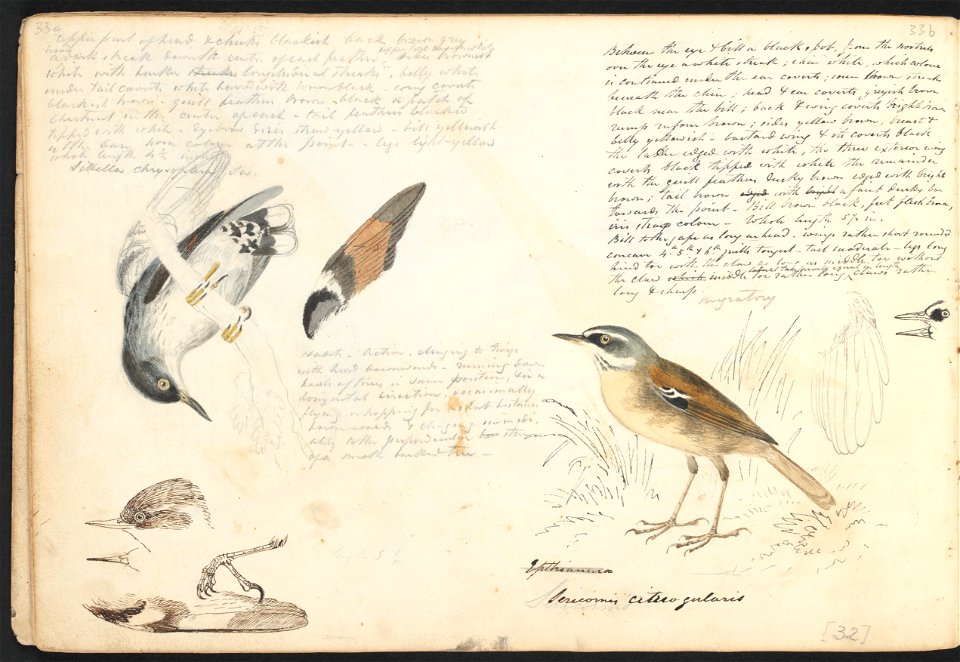 33a
Upper part of head & cheeks blackish back brown grey
a dark streak down the centre of each feather
white with darker longitudinal streaks belly white
under tail coverts white barred with brown black wing coverts
blackish brown - quill feathers brown black a patch of
chestnut in the centre of each - tail feathers blackish
tipped with white - Eyebrow irides straw yellow - bill yellowish
at the base horn colour at the point - legs light yellow
whole length 4½ in
Sittella chrysoptera Sw.
Habit - Action, clinging to twigs
with head downwards - running down
boles of trees in same position, in a
horizontal direction, occasionally
flying or hopping for a short distance
downwards & clinging immedi-
ately to the perpendicular
of a smooth barked tree -
33b
Between the eye & bill a black spot, from the nostrils
over the eye a white streak, chin white, which colour
is continued under the ear coverts; some brown streaks
beneath the chin; head & ear coverts greyish brown
black near the bill; back & wing coverts bright brown
rump rufous brown; sides yellow brown, breast &
belly yellowish - bastard wing & its coverts black
the latter edged with white, the three exterior wing
coverts black tipped with white the remainder
with the quill feathers dusky brown edged with bright
brown; tail brown edged with bright a faint dusky bar
towards the point - Bill brown black, feet flesh brown,
iris straw colour - Whole length 5½ in.
Bill to the gape as long as head - wings rather short rounded
concave 4th 5th & 6th quills longest - tail moderate - legs long
hind toe with the claw as long as middle toe without
the claw middle toe rather long, claws rather
long & sharp
Migratory
Epthianura
Sericornis citreogularis
[32]